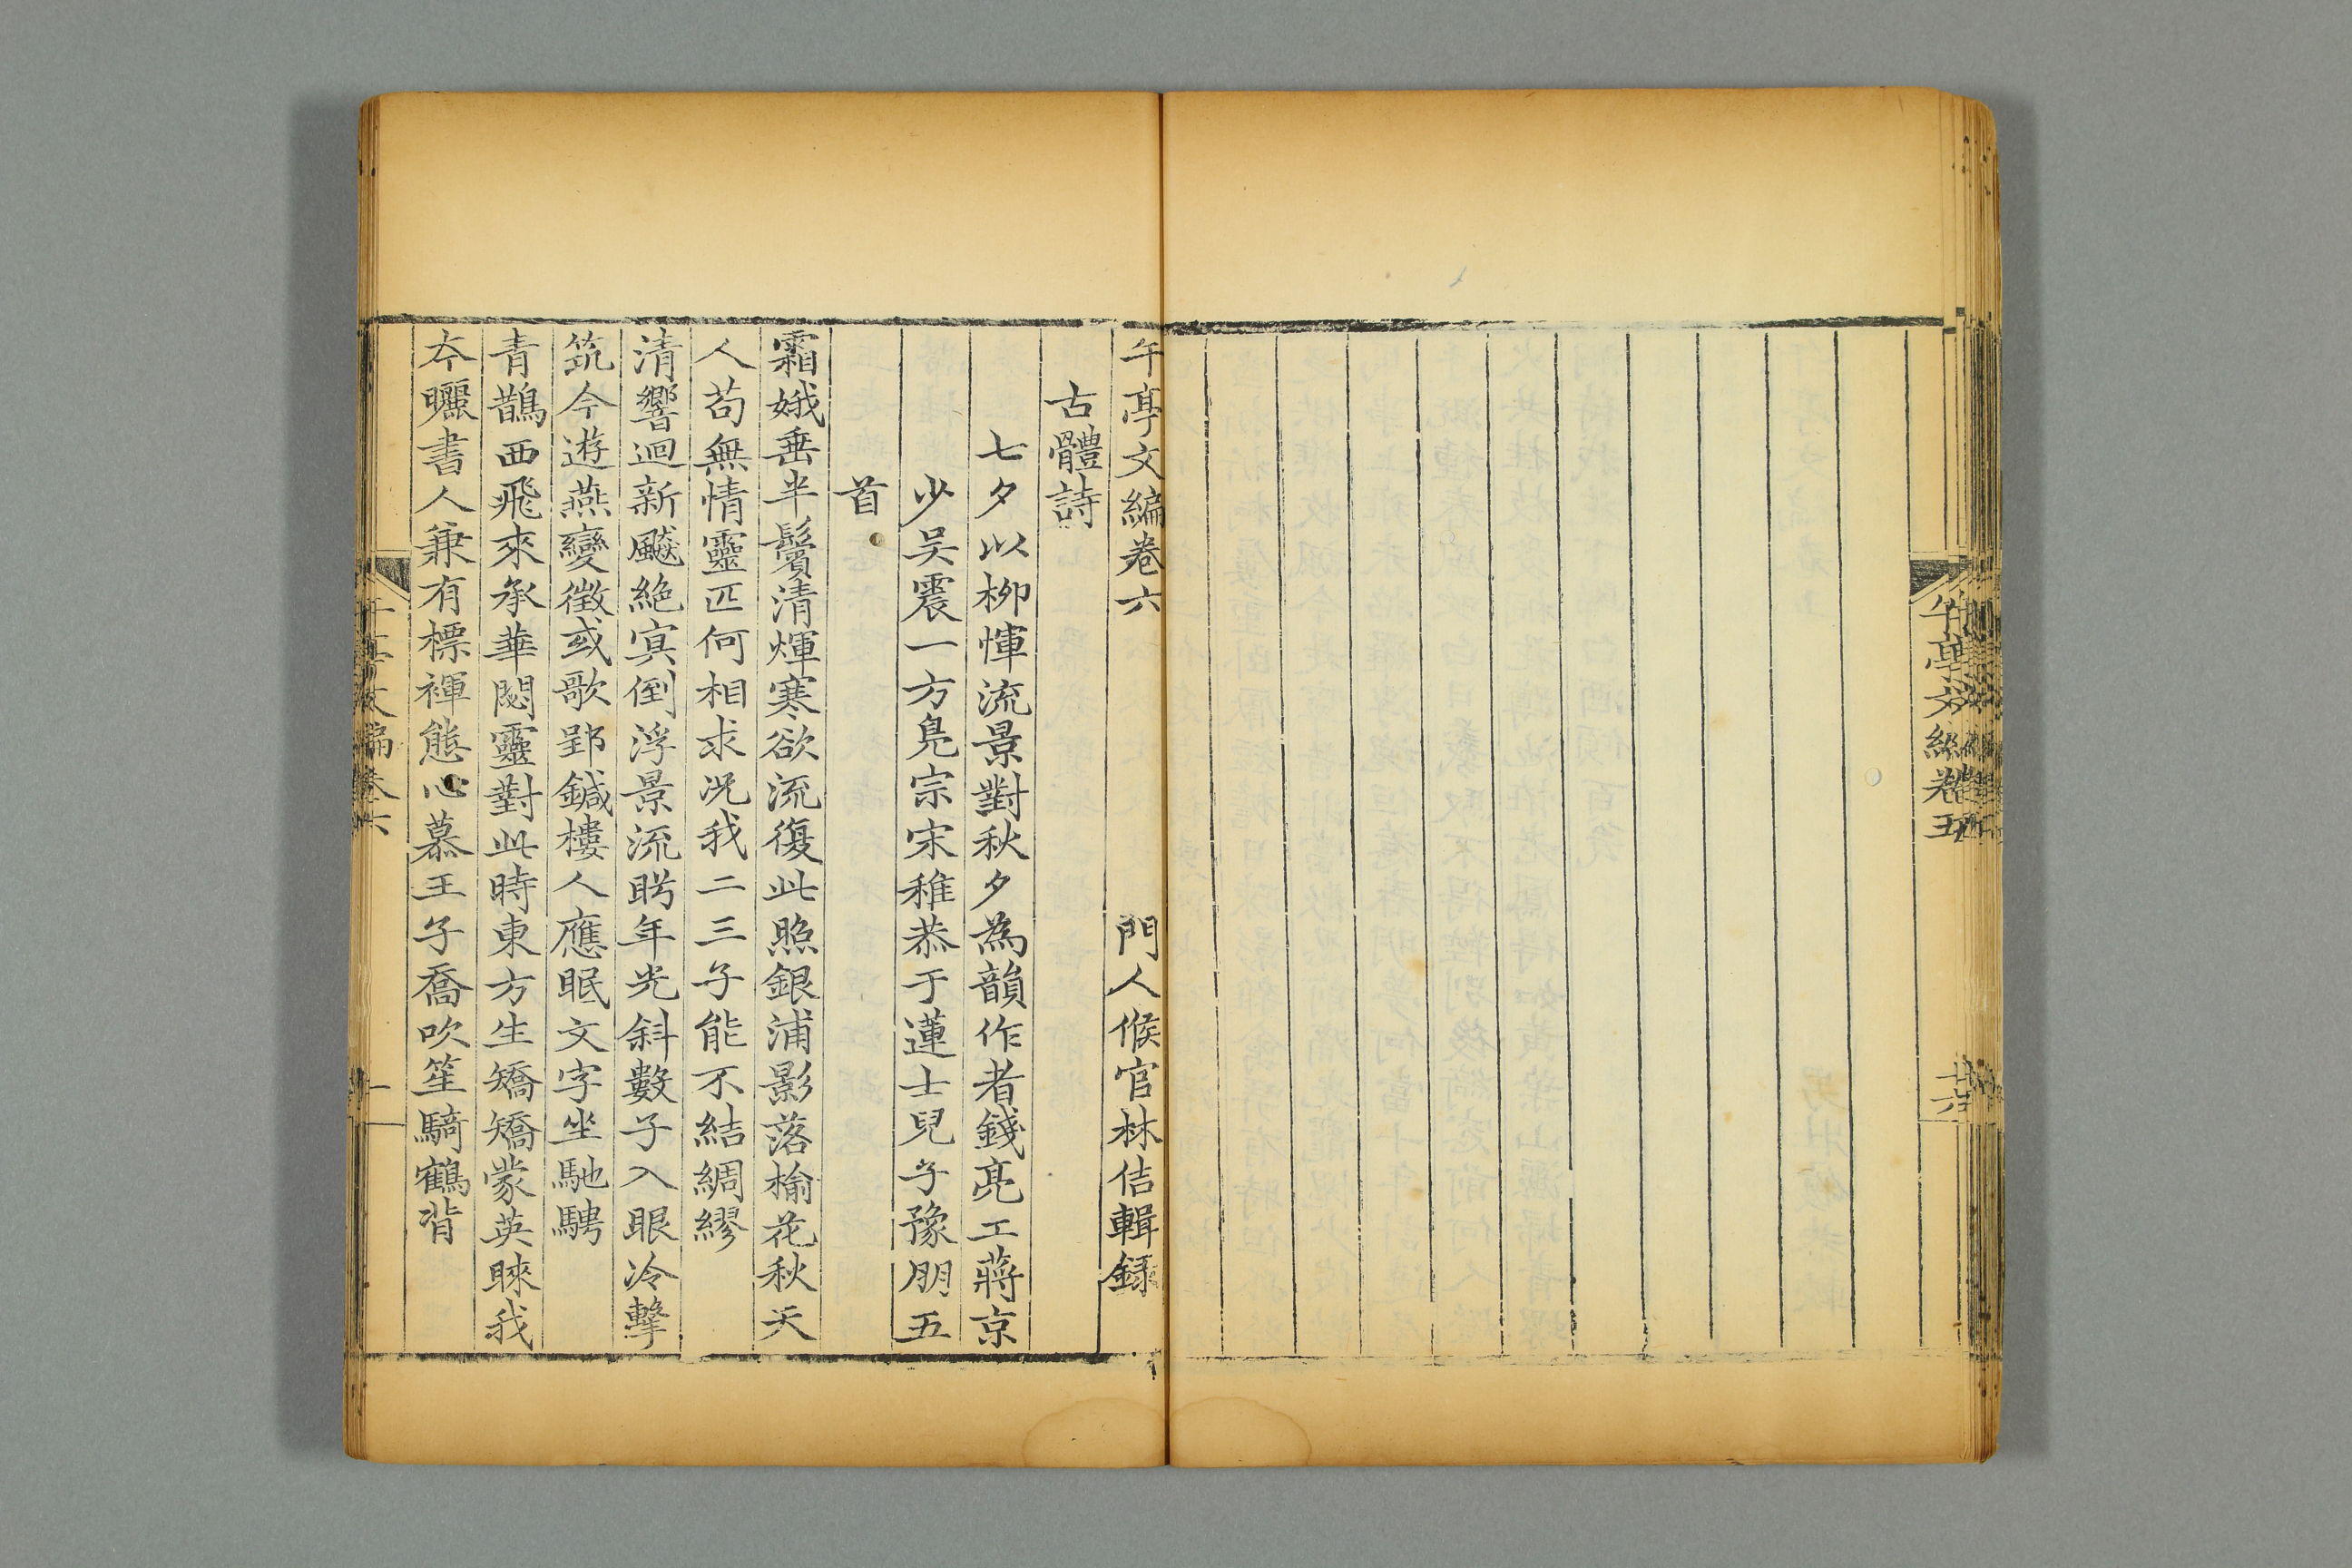 午亭文編卷五
廿六
午亭文編卷六 門人候官林佶輯錄
古體詩
七夕以柳惲流景對秋夕為韻作者錢亮工蔣京
少吳震一方鳧宗宋稚恭于蓮士兒子豫朋五
首
霜娥垂半鬢清煇寒欲流復此照銀浦影落榆花秋天
人苟無情靈匹何相求況我二三子能不結綢繆
清響迴新飈絕寘倒浮景流眄年光斜數子入眼冷擊
筑今遊燕變徵或歌郢鍼樓人應眠文字坐馳騁
青鵲西飛來承華閟靈對此時東方生矯矯蒙英睞我
夲曬書人兼有標褌態心慕王子喬吹笙騎鶴背
午亭文編卷六
一